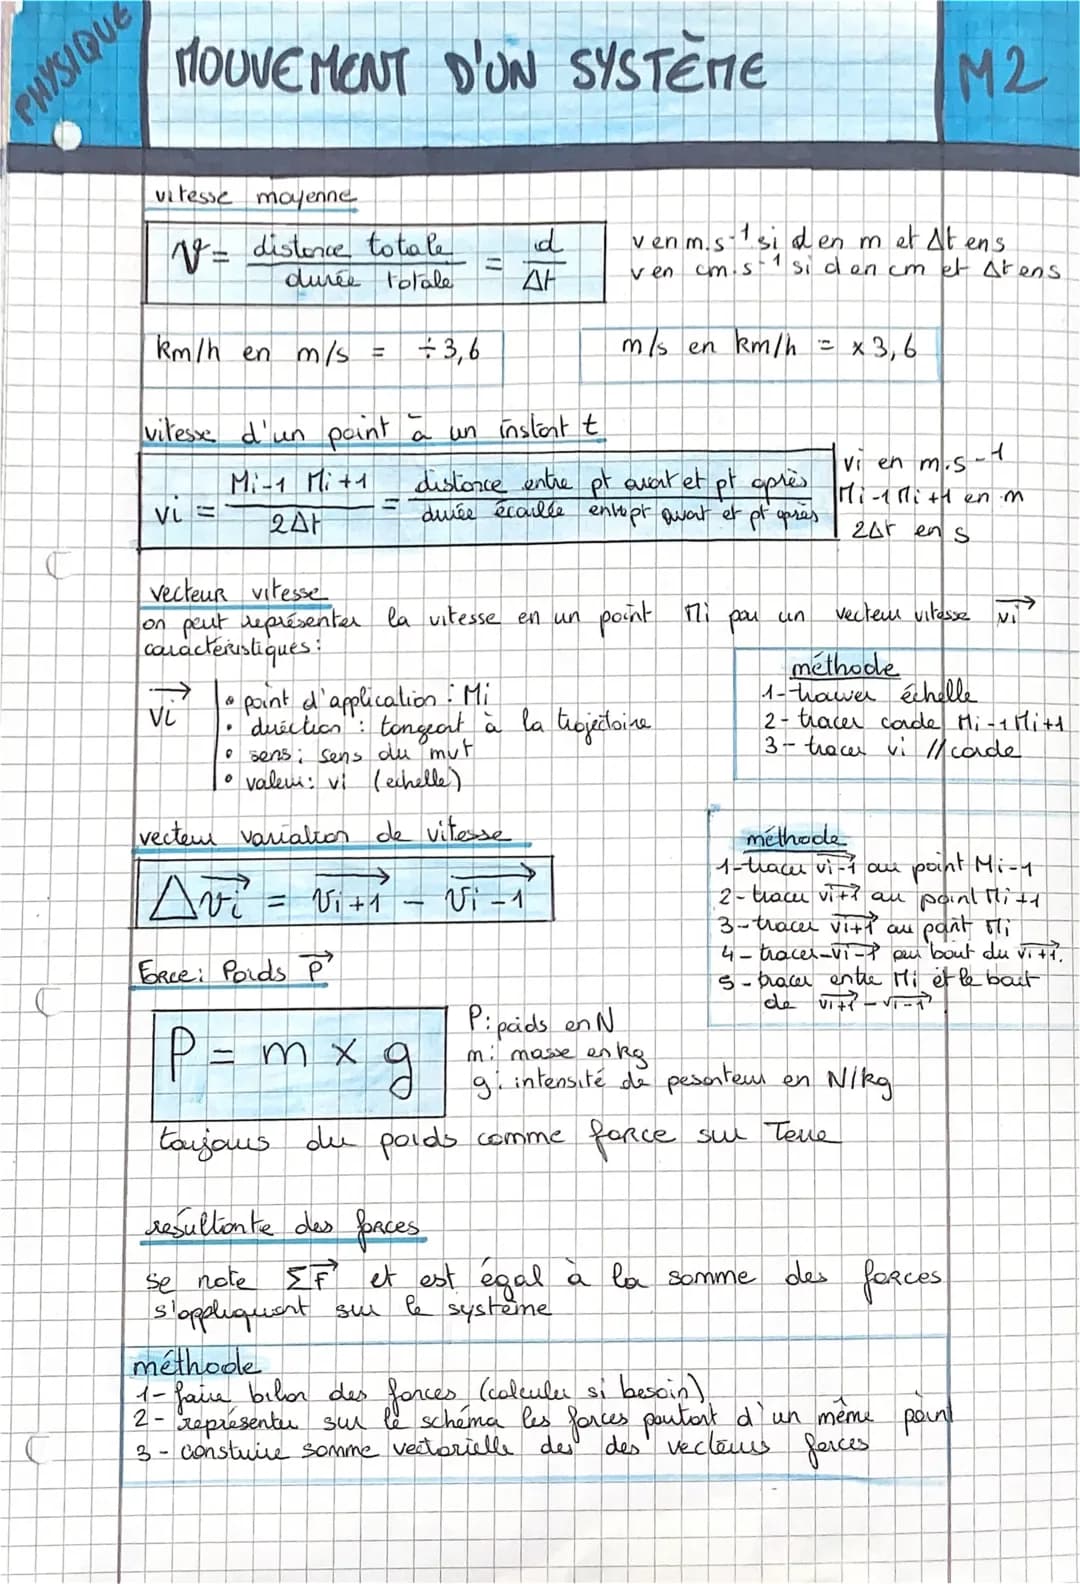 PHYSIQUE
MOUVEMENT D'UN SYSTÈME
M2
vitesse moyenne
V = distance totale / durée totale = d / Δt
v en m.s-1 si d en m et Δt en s
v en cm.s-1 si d en cm et Δt en s
km/h en m/s = ÷3,6
m/s en km/h = x3,6
vitesse d'un point à un instant t
vi = Mi-1 Mi+1 / 2Δt = distance entre pt avant et pt après / durée écoulée entre pt avant et pt après
vi en m.s-1
Mi-1 Mi+1 en m
2Δt en s
vecteur vitesse
on peut représenter la vitesse en un point Mi par un vecteur vitesse vi→
caractéristiques:
vi→
• point d'application : Mi
• direction : tangent à la trajectoire
• sens : sens du mvt
• valeur: vi (echelle)
méthode
1- trouver échelle
2- tracer corde Mi-1Mi+1
3- tracer vi // corde
vecteur variation de vitesse
Δvi→ = vi+1→ - vi-1→
méthode
1- tracer vi-1→ au point Mi-1
2- tracer vi+1→ au point Mi+1
3- tracer vi+1→ au point Mi
4- tracer -vi-1→ au bout du vi+1→.
5- tracer entre Mi et le bout
de vi+1→ - vi-1→
Force: Poids P→
P = m x g
P: poids en N
m: masse en kg
g: intensité de pesanteur en N/kg
toujours du poids comme force sur Terre
resultante des forces
se note ΣF→ et est égal à la somme des forces
s'appliquant sur le système
méthode
1- faire bilan des forces (calculer si besoin)
2- représenter sur le schéma les forces partant d'un même point
3- construire somme vectorielle des des vecteurs forces